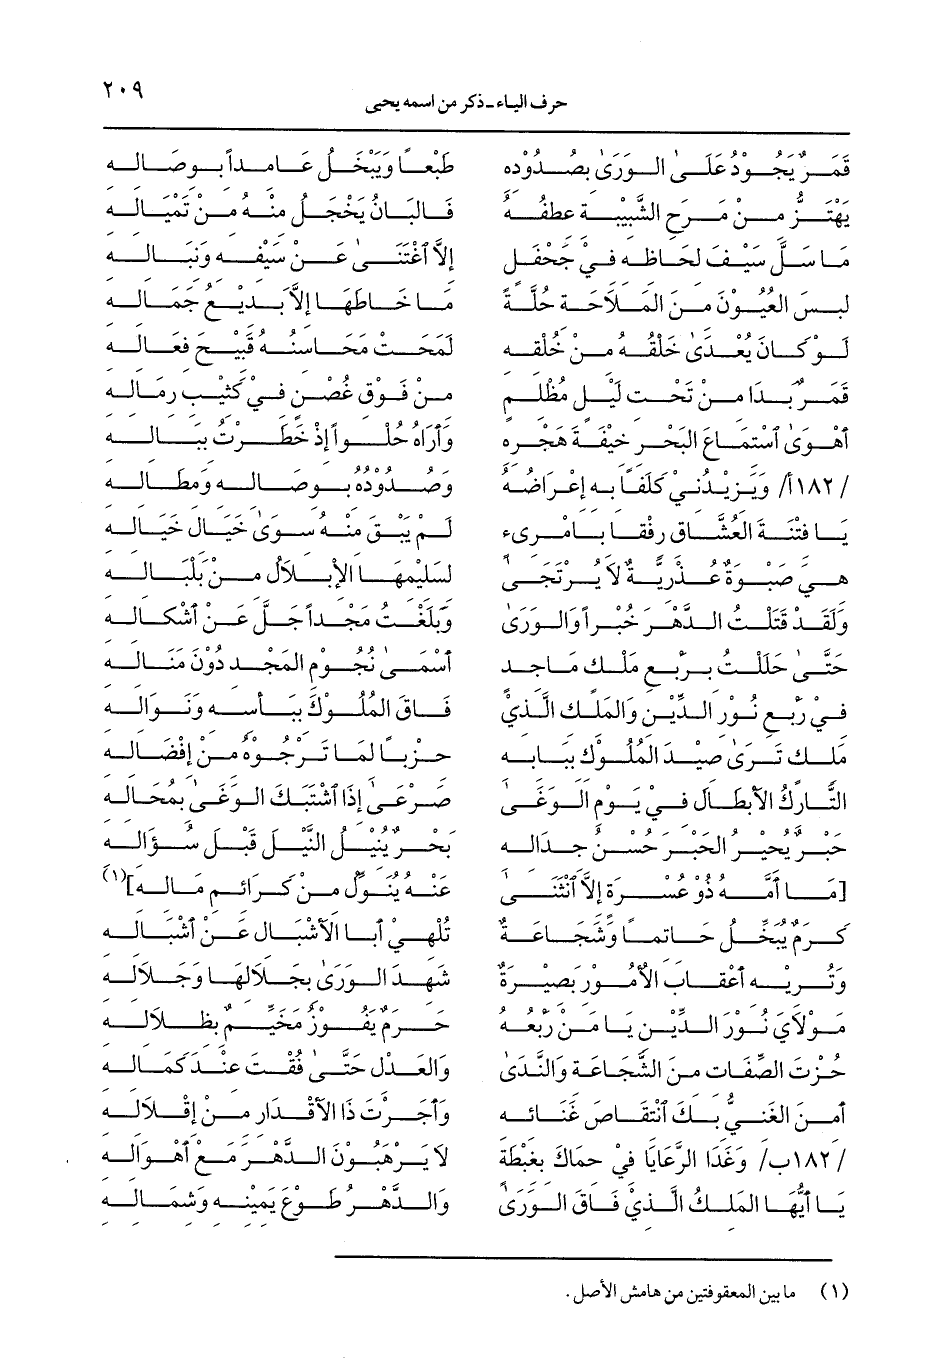 ٢٠٩
حرف الياء ـ ذكر من اسمه يحيى
قَمَرٌ يَجُودُ عَلَى الوَرَى بِصُدُودِهِ طَبْعًا وَيَبْخَلُ عَامِدًا بِوِصَالِهِ
يَهْتَزُّ مِنْ مَرَحِ الشَّبِيبَةِ عِطْفُهُ فَالبَانُ يَخْجَلُ مِنْهُ مِنْ تَمْيَالِهِ
مَا سَلَّ سَيْفَ لِحَاظِهِ فِي جَحْفَلٍ إِلاَّ اغْتَنَى عَنْ سَيْفِهِ وَنِبَالِهِ
لَبِسَ العُيُونُ مِنَ المَلاَحَةِ حُلَّةً مَا خَاطَهَا إِلاَّ بَدِيعُ جَمَالِهِ
لَوْ كَانَ يُعْدَى خَلْقُهُ مِنْ خُلْقِهِ لَمَحَتْ مَحَاسِنُهُ قَبِيحَ فَعَالِهِ
قَمَرٌ بَدَا مِنْ تَحْتِ لَيْلٍ مُظْلِمٍ مِنْ فَوْقِ غُصْنٍ فِي كَثِيبِ رِمَالِهِ
أَهْوَى اسْتِمَاعَ الهَجْرِ خِيفَةَ هَجْرِهِ وَأَرَاهُ حُلْواً إِذْ خَطَرْتُ بِبَالِهِ
/١٨٢أ/ وَيَزِيدُنِي كَلَفًا بِهِ إِعْرَاضُهُ وَصُدُودُهُ بِوِصَالِهِ وَمِطَالِهِ
يَا فِتْنَةَ العُشَّاقِ رِفْقًا بِامْرِىءٍ لَمْ يَبْقَ مِنْهُ سِوَى خَيَالِ خَيَالِهِ
هِيَ صَبْوَةٌ عُذْرِيَّةٌ لاَ يُرْتَجَى لِسَلِيمِهَا الإِبْلاَلُ مِنْ بَلْبَالِهِ
وَلَقَدْ قَتَلْتُ الدَّهْرَ خُبْراً وَالوَرَى وَبَلَغْتُ مَجْداً جَلَّ عَنْ أَشْكَالِهِ
حَتَّى حَلَلْتُ بِرَبْعِ مَلْكٍ مَاجِدٍ أَمْسَى نُجُومُ المَجْدِ دُونَ مَنَالِهِ
فِي رَبْعِ نُورِ الدِّيْنِ وَالمَلِكِ الَّذِيْ فَاقَ المُلُوكَ بِبَأْسِهِ وَنَوَالِهِ
مَلِكٌ تَرَى صِيْدَ المُلُوكِ بِبَابِهِ حِزْبًا لِمَا تَرْجُوهُ مِنْ إِفْضَالِهِ
التَّارِكُ الأَبْطَالَ فِي يَوْمِ الوَغَى صَرْعَى إِذَا اشْتَبَكَ الوَغَى بِمَجَالِهِ
حَبْرٌ يُحَيِّرُ الحَبْرَ حُسْنُ جِدَالِهِ بَحْرٌ يُنِيلُ النَّيْلَ قَبْلَ سُؤَالِهِ
[مَا أَمَّهُ ذُو عُسْرَةٍ إِلاَّ انْثَنَى عَنْهُ يَنُولُ مِنْ كَرَائِمِ مَالِهِ](١)
كَرَمٌ يُبَخِّلُ حَاتِمًا وَشَجَاعَةٌ تُلْهِي أَبَا الأَشْبَالِ عَنْ أَشْبَالِهِ
وَتُرِيهِ أَعْقَابَ الأُمُورِ بَصِيرَةٌ شَهِدَ الوَرَى بِجَلاَلِهَا وَجَلاَلِهِ
مَوْلاَيَ نُورَ الدِّيْنِ يَا مَنْ رَبْعُهُ حَرَمٌ يَفُوزُ مُخَيِّمٌ بِظِلاَلِهِ
حُزْتَ الصِّفَاتِ مِنَ الشَّجَاعَةِ وَالنَّدَى وَالعَدْلِ حَتَّى فُقْتَ عِنْدَ كَمَالِهِ
أَمِنَ الغَنِيُّ بِكَ انْتِقَاصَ غَنَائِهِ وَأَجَرْتَ ذَا الأَقْدَارِ مِنْ إِقْلاَلِهِ
/١٨٢ب/ وَغَدَا الرَّعَايَا فِي حِمَاكَ بِغِبْطَةٍ لاَ يَرْهَبُونَ الدَّهْرَ مَعْ أَهْوَالِهِ
يَا أَيُّهَا المَلِكُ الَّذِيْ فَاقَ الوَرَى وَالدَّهْرُ طَوْعُ يَمِينِهِ وَشِمَالِهِ
(١) ما بين المعقوفتين من هامش الأصل.